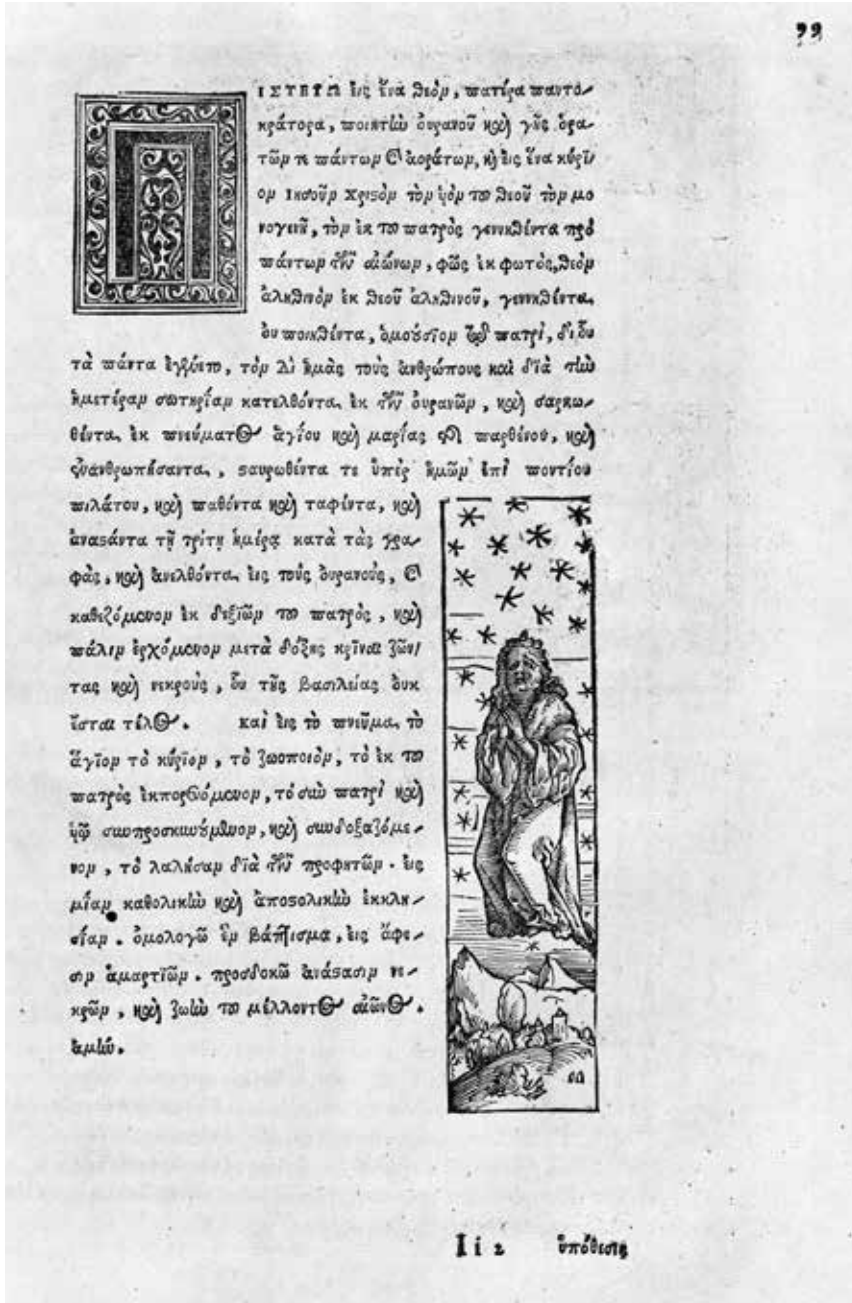 99
ΠΙΣΤΕΥΩ εἰς ἕνα θεὸν, πατέρα παντο-
κράτορα, ποιητὴν ὀυρανοῦ καὶ γῆς ὁρα-
τῶν τε πάντων καὶ ἀοράτων, καὶ εἰς ἕνα κύρι-
ον Ιησοῦν Χριστὸν τὸν ὑὸν τοῦ θεοῦ τὸν μο
νογενῆ, τὸν ἐκ τοῦ πατρὸς γεννηθέντα πρὸ
πάντων τῶν αἰώνων, φῶς ἐκ φωτὸς, θεὸν
ἀληθινὸν ἐκ θεοῦ ἀληθινοῦ, γεννηθέντα
ὀυ ποιηθέντα, ὁμοούσιον τῷ πατρὶ, δι ὁυ
τὰ πάντα ἐγένετο, τὸν δι ἡμᾶς τοὺς ἀνθρώπους καὶ διὰ τὴν
ἡμετέραν σωτηρίαν κατελθόντα ἐκ τῶν ὀυρανῶν, καὶ σαρκω-
θέντα ἐκ πνεύματος ἁγίου καὶ μαρίας τῆς παρθένου, καὶ
ἐνανθρωπήσαντα, σταυρωθέντα τε ὑπὲρ ἡμῶν ἐπὶ ποντίου
πιλάτου, καὶ παθόντα καὶ ταφέντα, καὶ
ἀναστάντα τῇ τρίτῃ ἡμέρᾳ κατὰ τὰς γρα-
φὰς, καὶ ἀνελθόντα εἰς τοὺς ὀυρανοὺς, καὶ
καθεζόμενον ἐκ δεξιῶν τοῦ πατρὸς, καὶ
πάλιν ἐρχόμενον μετὰ δόξης κρῖναι ζῶν-
τας καὶ νεκροὺς, ὁυ τῆς βασιλείας ὀυκ
ἔσται τέλος. καὶ εἰς τὸ πνεῦμα τὸ
ἅγιον τὸ κύριον, τὸ ζωοποιὸν, τὸ ἐκ τοῦ
πατρὸς ἐκπορευόμενον, τὸ σὺν πατρὶ καὶ
ὑῷ συνπροσκυνούμενον, καὶ συνδοξαζόμε-
νον, τὸ λαλῆσαν διὰ τῶν προφητῶν. εἰς
μίαν καθολικὴν καὶ ἀποστολικὴν ἐκκλη-
σίαν. ὁμολογῶ ἓν βάπτισμα, εἰς ἄφε-
σιν ἁμαρτιῶν. προσδοκῶ ἀνάστασιν νε-
κρῶν, καὶ ζωὴν τοῦ μέλλοντος αἰῶνος.
ἀμήν.
Ii 2 ὑπόθεσις